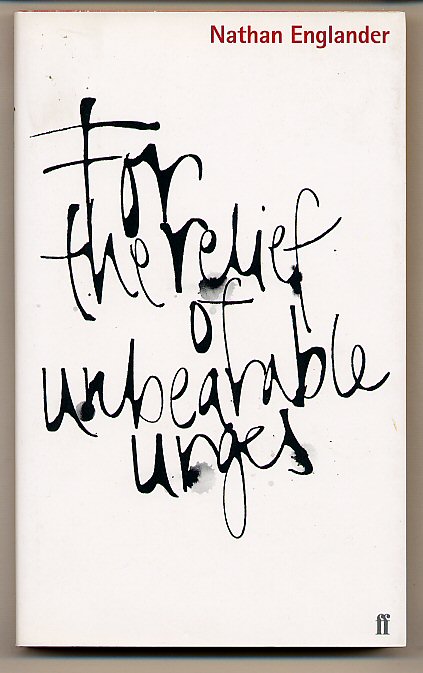 Nathan Englander
For
the relief
of
unbearable
urges
ff